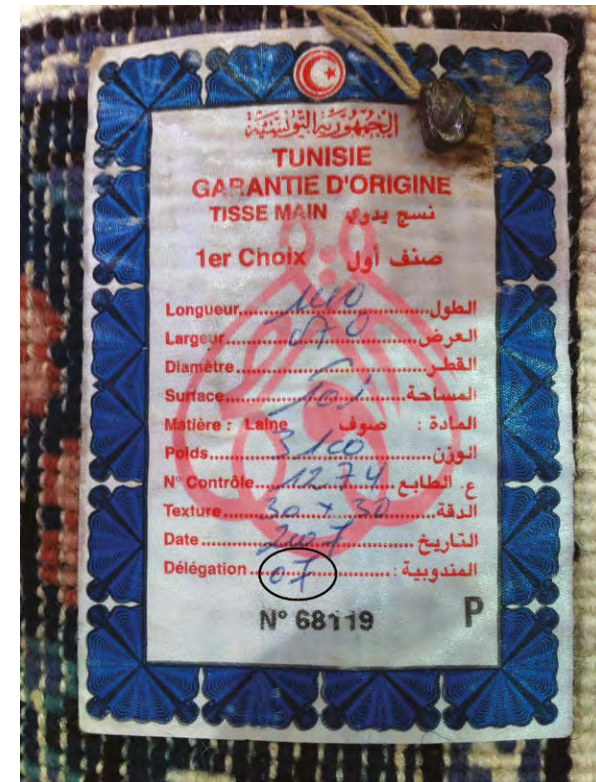 الجمهورية التونسية
TUNISIE
GARANTIE D'ORIGINE
TISSE MAIN نسج يدوي
1er Choix صنف أول
Longueur 140 الطول
Largeur 070 العرض
Diamètre القطر
Surface المساحة
Matière : Laine صوف المادة :
Poids 3100 الوزن
N° Contrôle 1274 ع. الطابع
Texture 30 x 30 الدقة
Date 2007 التاريخ
Délégation 07 المندوبية :
N° 68119 P